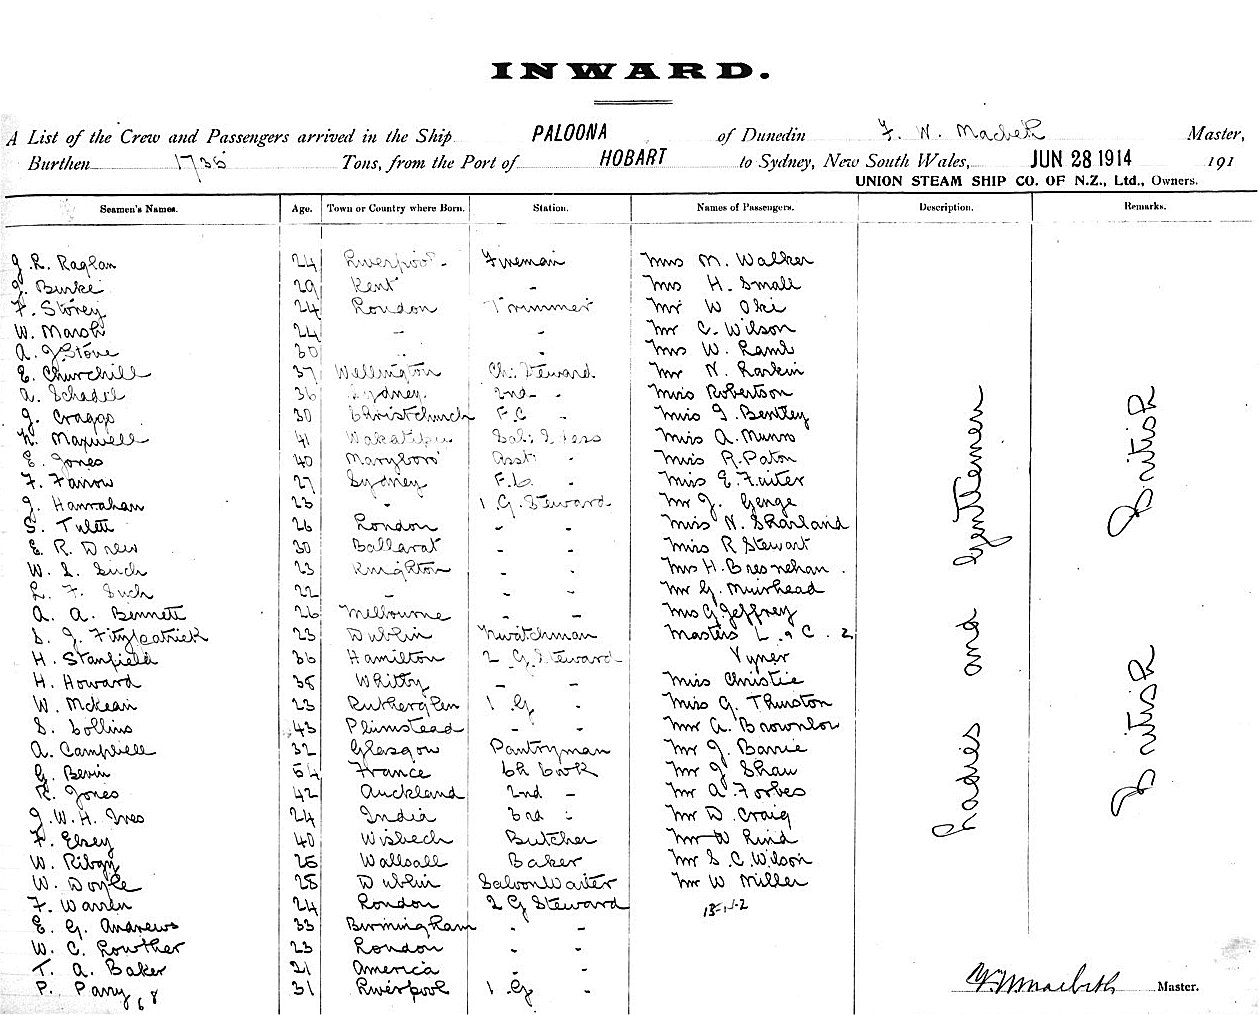 INWARD.
A List of the Crew and Passengers arrived in the Ship PALOONA of Dunedin F. W. Macbeth Master,
Burthen 1735 Tons, from the Port of HOBART to Sydney, New South Wales, JUN 28 1914 191
UNION STEAM SHIP CO. OF N.Z., Ltd., Owners.
Seamen's Names. Age. Town or Country where Born. Station. Names of Passengers. Description. Remarks.
J. R. Raglan 24 Liverpool - Fireman Mrs M. Walker
J. Burke 29 Kent - Mrs H. Small
F. Storey 24 London Trimmer Mr W Oki
W. Marsh 24 - - Mr C. Wilson
A. J Stone 30 - - Mrs W. Lamb
E. Churchill 37 Wellington Ch: Steward Mr N. Larkin
A. Schadel 36 Sydney 2nd - - Miss Robertson
J. Craggs 30 Christchurch F.C - Miss I. Bentley
K. Maxwell 41 Wakatipu Miss A. Munro
E. Jones 40 Maryboro' Asst: - Miss R. Paton
F. Farrow 27 Sydney F.C. - Miss E. Faiter
J. Hanrahan 23 - 1 G. Steward Mr J. Genge
S. 26 London - - Miss N. Sharland
E. R. Drew 30 Ballarat - - Miss R Stewart
W. L. Such 23 Knighton - - Mrs H. Bresnehan
L. F. Such 22 - - - Mr G. Muirhead
A. A. Bennett 26 Melbourne - - Mrs G Jeffrey
S. J. Fitzpatrick 23 Dublin Nwatchman Masters L. & C. 2
H. Stanfield 36 Hamilton 2 G Steward Vyner
H. Howard 38 Whitby - - Miss Christie
W. McKean 23 Rutherglen 1 G - Miss G. Thurston
S. Collins 43 Plumstead - - Mr A. Brownlow
A. Campbell 32 Glasgow Pantryman Mr J. Barrie
G. Bevin 54 France Ch Cook Mr J Shaw
R. Jones 42 Auckland 2nd - Mr A. Forbes
J. W. H. Ives 24 India 3rd - Mr D. Craig
F. Elsey 40 Wisbech Butcher Mr W Rind
W. Ribgy 25 Wallsall Baker Mr S. C. Wilson
W. Doyle 28 Dublin Saloon Waiter Mr W Miller
F. Warren 24 London 2 G Steward
E. G. Andrews 33 Birmingham - -
W. C. Lowther 23 London - -
T. A. Baker 21 America - -
P. Parry 31 Liverpool 1 G -
68
Ladies and Gentlemen
British
British
F. W Macbeth Master.